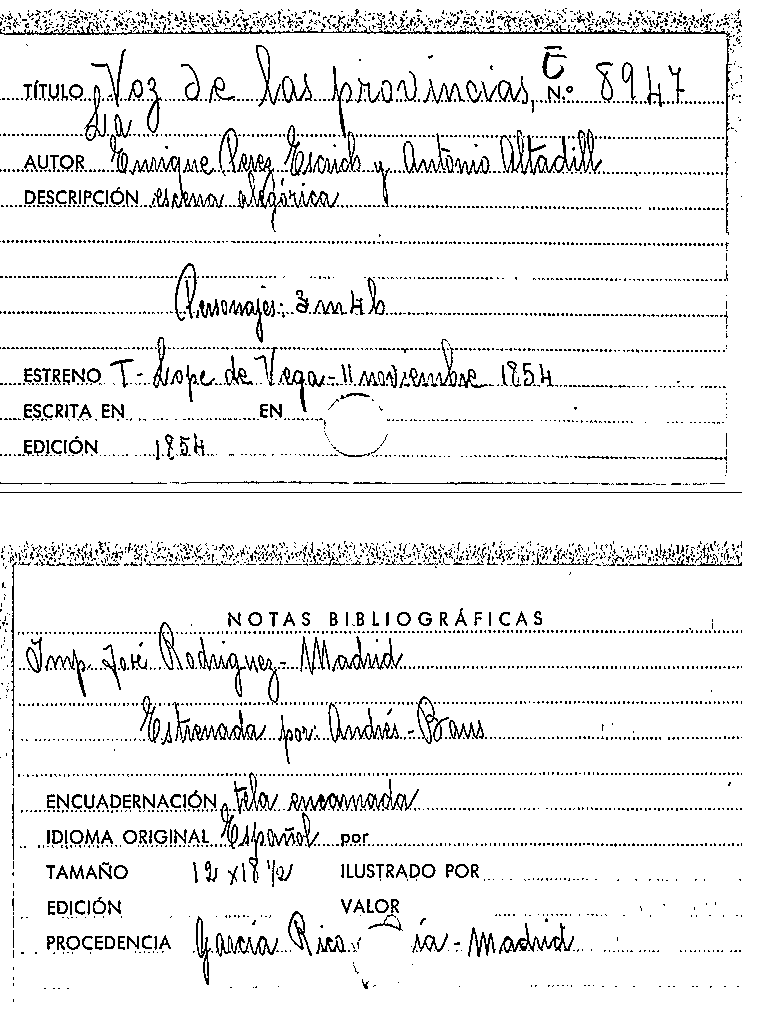 TÍTULO Voz de las provincias, N.º E 8947
La
AUTOR Enrique Perez Escrich y Antonio Altadill
DESCRIPCIÓN escena alegórica
Personajes: 3 m 4 h
ESTRENO T- Lope de Vega - 11 noviembre 1854
ESCRITA EN EN
EDICIÓN 1854
NOTAS BIBLIOGRÁFICAS
Imp. José Rodriguez - Madrid
Estrenada por: Andrés - Baus
ENCUADERNACIÓN tela encarnada
IDIOMA ORIGINAL Español por
TAMAÑO 12 x 18 1/2 ILUSTRADO POR
EDICIÓN VALOR
PROCEDENCIA García Rico ía - Madrid